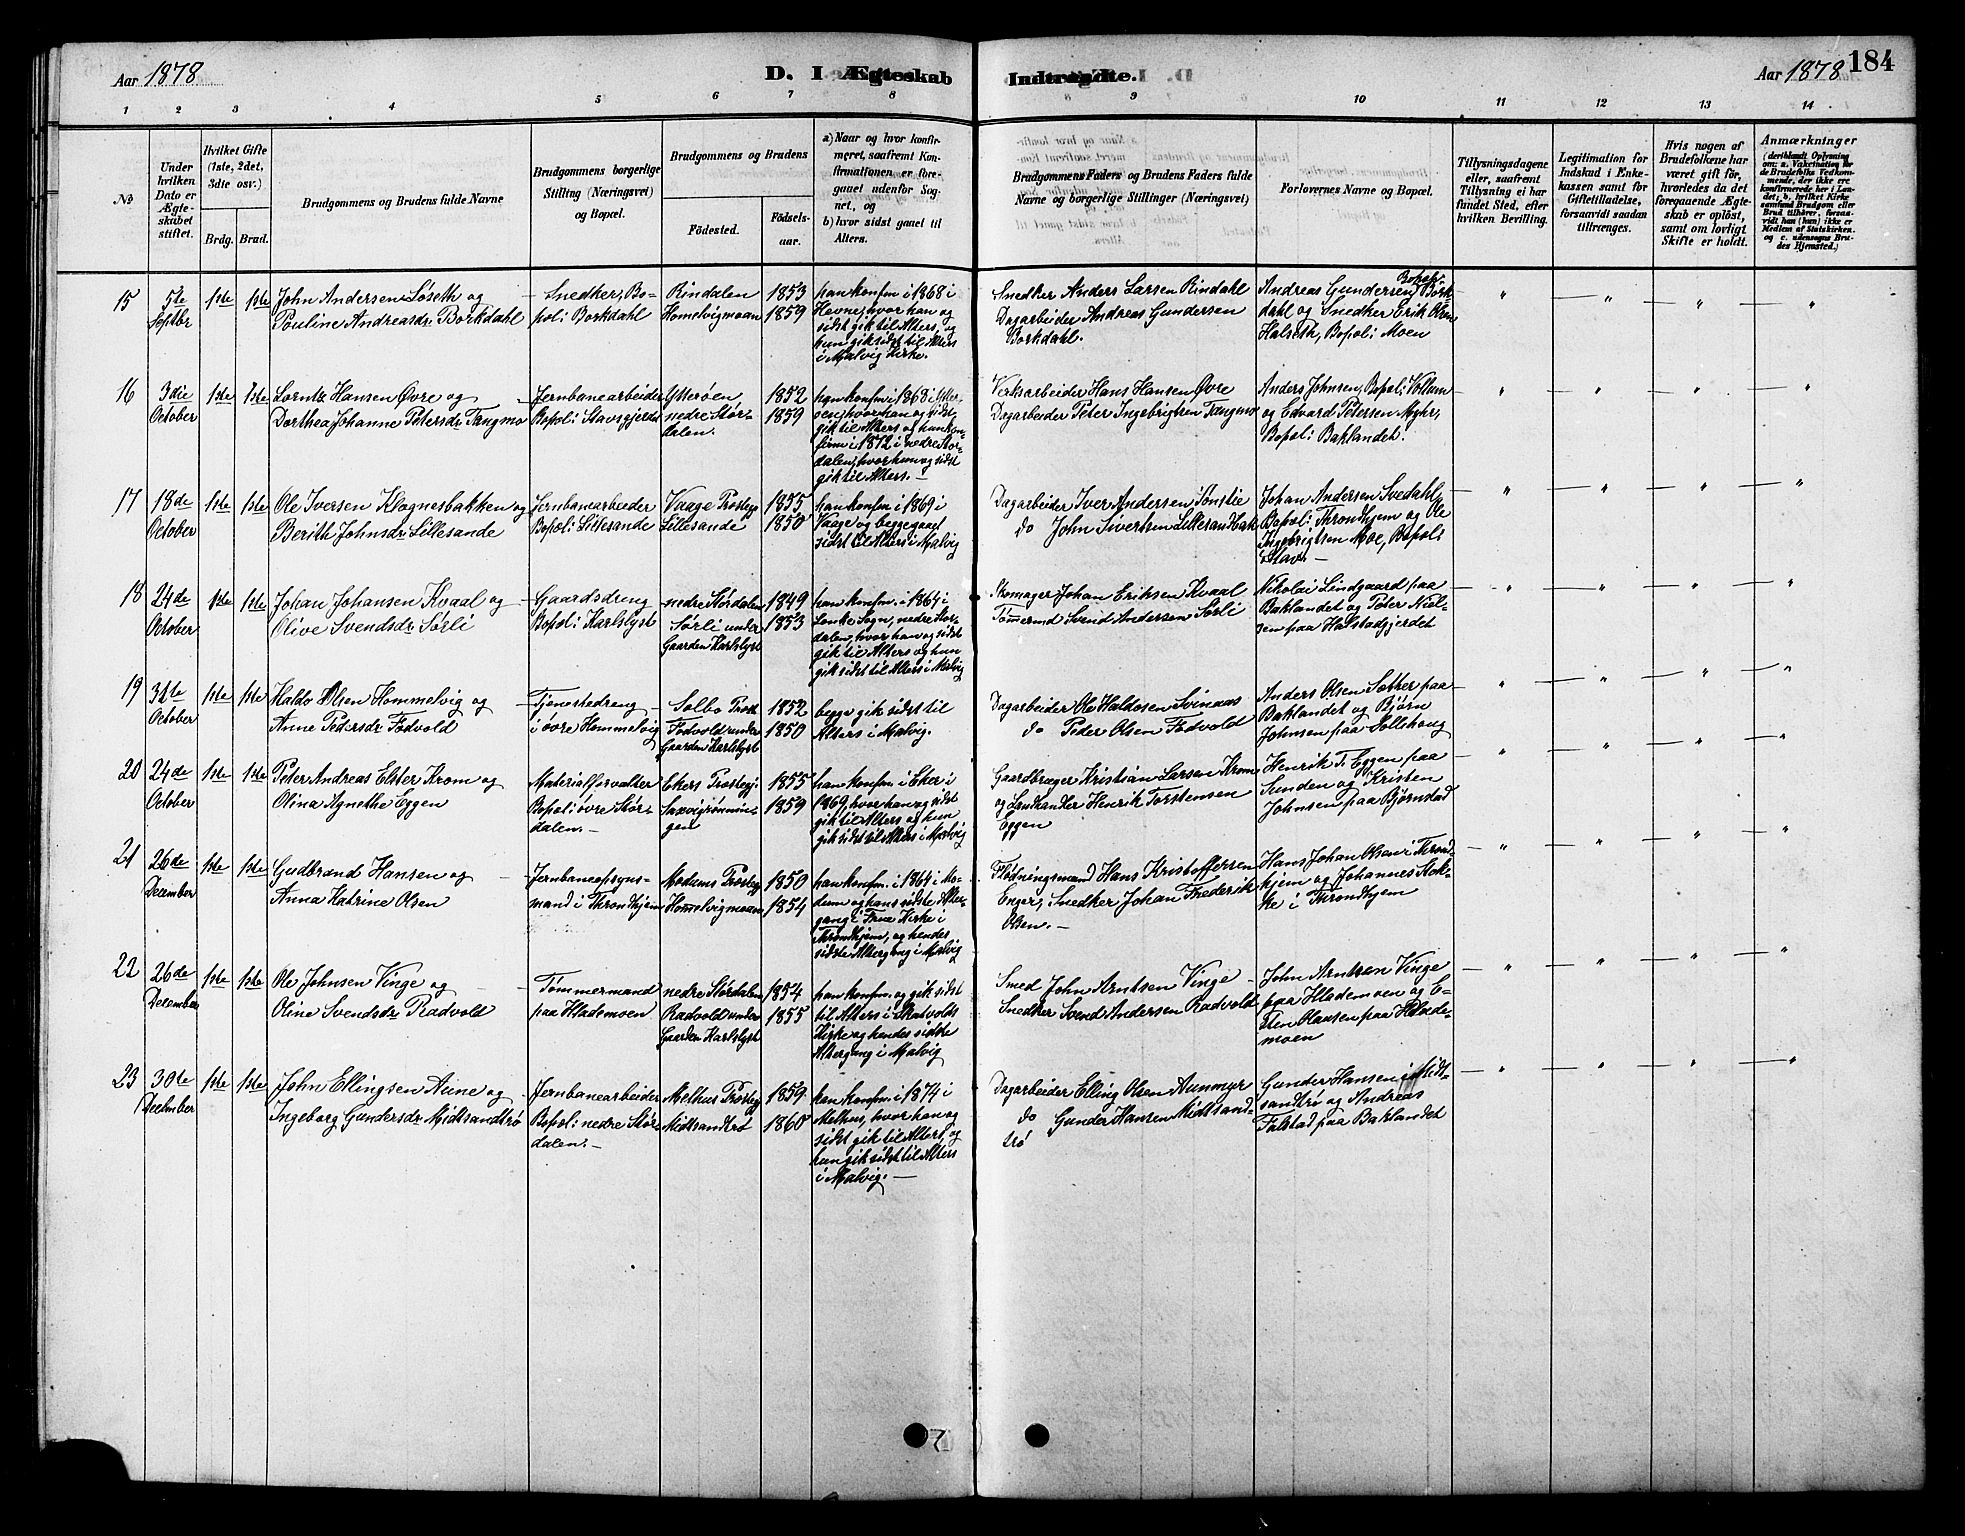 Aar 1878
D. I Ægteskab
Indtraadte.
Aar 1878
184
1 2 3 4 5 6 7 8 9 10 11 12 13 14
No
Under hvilken Dato er Ægteskabet stiftet.
Hvilket Gifte (1ste, 2det, 3die osv.)
Brdg. Brud.
Brudgommens og Brudens fulde Navne
Brudgommens borgerlige Stilling (Næringsvei) og Bopæl.
Brudgommens og Brudens
Fødested.
Fødselsaar.
a) Naar og hvor konfirmeret, saafremt Konfirmationen er foregaaet udenfor Sognet, og
b) hvor sidst gaaet til Alters.
Brudgommens Faders og Brudens Faders fulde Navne og borgerlige Stillinger (Næringsvei)
Forlovernes Navne og Bopæl.
Tillysningsdagene eller, saafremt Tillysning ei har fundet Sted, efter hvilken Bevilling.
Legitimation for Indskud i Enkekassen samt for Giftetilladelse, forsaavidt saadan tiltrænges.
Hvis nogen af Brudefolkene har været gift før, hvorledes da det foregaaende Ægteskab er opløst, samt om lovligt Skifte er holdt.
Anmærkninger
(deriblandt Oplysning om: a. Vakcination for de Brudefolks Vedkommende, der ikke ere konfirmerede her i Landet; b. hvilket Kirkesamfund Brudgom eller Brud tilhører, forsaavidt han (hun) ikke er Medlem af Statskirken, og c. udensogns Brudes Hjemsted.)
15
5te Septbr
1ste 1ste
John Andersen Løseth og
Pouline Andreasdr Borkdahl
Snedker, Bo-
pæl: Borkdahl
Rindalen 1853
Homelvigmoan 1859
han konfm i 1868 i
Hevne, hvor han og
sidst gik til Alters, og
hun gik sidst til Alters
i Malvig Kirke.
Snedker Anders Larsen Rindahl
Dagarbeider Andreas Gundersen
Borkdahl.
Andreas Gundersen Bopæl: Bork-
dahl og Snedker Erik Olsen
Halseth, Bopæl: Moen
16
3die October
1ste 1ste
Lorntz Hansen Øvre og
Dorthea Johanne Petersdr Tangmo
Jernbanearbeider
Bopæl: Stavsgjerdet
Ytterøen 1852
nedre Stør-
dalen. 1859
han konfm i 1868 i Ytter-
øen, hvor han og sidst
gik til Alters og hun kon-
firm i 1872 i nedre Stør-
dalen, hvor hun og sidst
gik til Alters.
Verksarbeider Hans Hansen Øvre
Dagarbeider Peter Ingebrigtsen Tangmo
Anders Johnsen, Bopæl: Vollum
og Edvard Petersen Myhr,
Bopæl: Baklandet.
17
18de October
1ste 1ste
Ole Iversen Klognesbakken og
Berith Johnsdr Lillesande
Jernbanearbeider
Bopæl: Lillesande
Vaage Prostegj. 1855
Lillesande 1850
han konfm. i 1869 i
Vaage og begge gaaet
sidst til Alters i Malvig
Dagarbeider Iver Andersen
do John Sivertsen
Johan Andersen Svedahl,
Bopæl: Throndhjem og Ole
Ingebrigtsen Moe, Bopæl:
Stav.
18
24de October
1ste 1ste
Johan Johansen Kvaal og
Olive Svendsdr Sørli
Gaardsdreng
Bopæl: Karlslyst
nedre Størdalen 1849
Sørli under
Gaarden Karlslyst 1853
han konfm. i 1864 i
Lonke Sogn, nedre Stør-
dalen, hvor han og sidst
gik til Alters og hun
gik sidst til Alters i Malvig
Skomager Johan Eriksen Kvaal
Tømermd Svend Andersen Sørli
Nikolai Lindgaard paa
Baklandet og Peter Niel-
sen paa Halstadgjerdet
19
31te October
1ste 1ste
Haldo Olsen Hommelvig og
Anne Pedersdr Fodvold
Tjenestedreng
i øvre Hommelvig
Selbo Prost. 1852
Fodvold under
Gaarden Karlslyst 1850
begge gik sidst til
Alters i Malvig.
Dagarbeider Ole Haldosen Svinaas
do Peder Olsen Fodvold
Anders Olsen Sæther paa
Baklandet og Bjørn
Johnsen paa Sollihaug
20
24de October
1ste 1ste
Peter Andreas Elster Krom og
Olina Agnethe Eggen
Materialforvalter
Bopæl: øvre Stør-
dalen.
Ekers Prostegj: 1855
Saxvigrønnin-
gen 1859
han konfm. i Eker i
1869, hvor han og sidst
gik til Alters og hun
gik sidst til Alters i Malvig
Gaardbruger Kristian Larsen Krom
og Landhandler Henrik Torstensen
Eggen
Henrik T. Eggen paa
Sunden og Kristen
Johnsen paa Bjørnstad
21
26de December
1ste 1ste
Gudbrand Hansen og
Anna Katrine Olsen
Jernbaneopsyns-
mand i Throndhjem
Modums Prostegj 1850
Homelvigmoan 1854
han konfm. i 1864 i Mo-
dum og hans sidste Alter-
gang i Frue Kirke i
Throndhjem, og hendes
sidste Altergang i Malvig
Flødningsmand Hans Kristoffersen
Enger, Snedker Johan Frederik
Olsen.
Hans Johan Olsen i Thrond-
hjem og Johannes Stok-
ke i Throndhjem
22
26de December
1ste 1ste
Ole Johnsen Vinge og
Oline Svendsdr Radvold
Tømmermand
paa Hlademoen
nedre Størdalen 1854
Radvold under
Gaarden Karlslyst 1855
han konfm. og gik sidst
til Alters i Skatvolds
Kirke og hendes sidste
Altergang i Malvig
Smed John Arntsen Vinge
Snedker Svend Andersen Radvold
John Arntsen Vinge
paa Hlademoen og E-
sten Olausen paa Hlade-
moen
23
30te December
1ste 1ste
John Ellingsen Aune og
Ingeborg Gundersdr Midtsandtrø
Jernbanearbeider
Bopæl: nedre Stør-
dalen.
Melhus Prostegj 1859
Midtsandtrø 1860
han konfm. i 1874 i
Melhus, hvor han og
sidst gik til Alters, og
hun gik sidst til Alters
i Malvig.
Dagarbeider Elling Olsen Aunmyr
do Gunder Hansen Midtsand-
trø
Gunder Hansen i Midt-
sandtrø og Andreas
Falstad paa Baklandet